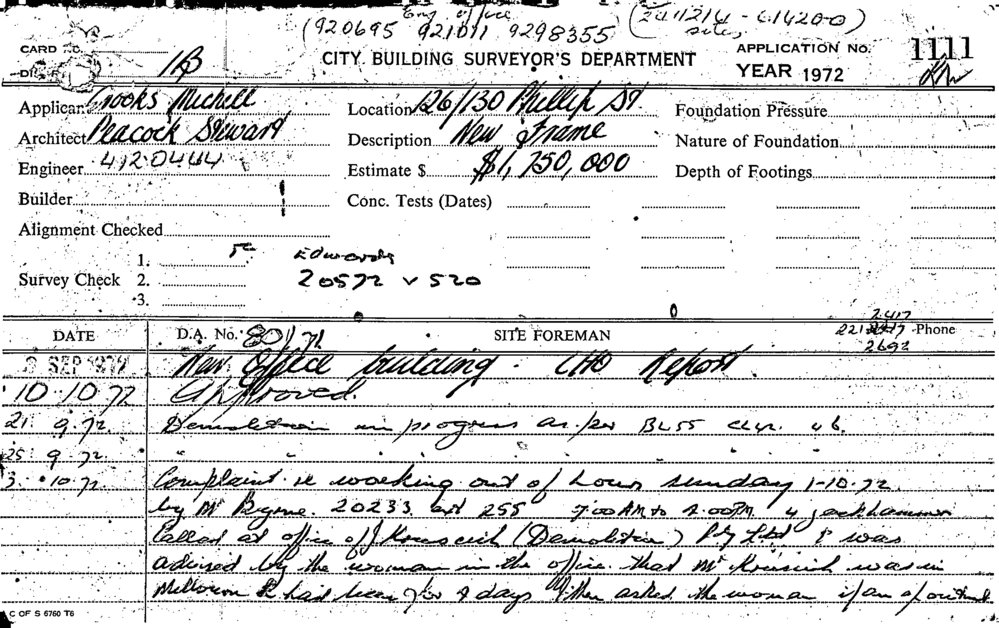 Eng office (241214 - 614200)
(920695 921011 9298355 site)
CARD NO. 1B CITY BUILDING SURVEYOR'S DEPARTMENT APPLICATION No. 1111
YEAR 1972
Applicant Crooks Michell Location 126/130 Phillip St. Foundation Pressure
Architect Peacock Stewart Description New Frame Nature of Foundation
Engineer 4120444 Estimate $ $1,750,000 Depth of Footings
Builder Conc. Tests (Dates)
Alignment Checked
1. Edwards
Survey Check 2. 20572 v 520
3.
2417
DATE D.A. No. 801/72 SITE FOREMAN Phone
2692
SEP 1972 New Office building. CHO Report
10.10.72 Approved.
21. 9. 72. Demolition in progress as per BL55
25. 9. 72. " " " " " "
3. 10. 72 Complaint re working out of hours sunday 1-10-72
by Mr Byrne. 20233 ext 255 7:00 AM to 2.00 PM. 4 jackhammers
Called at office of (Demolition) Pty Ltd & was
advised by the woman in the office that Mr was in
& had been for 4 days I then asked the woman if an
C OF S 6760 T6